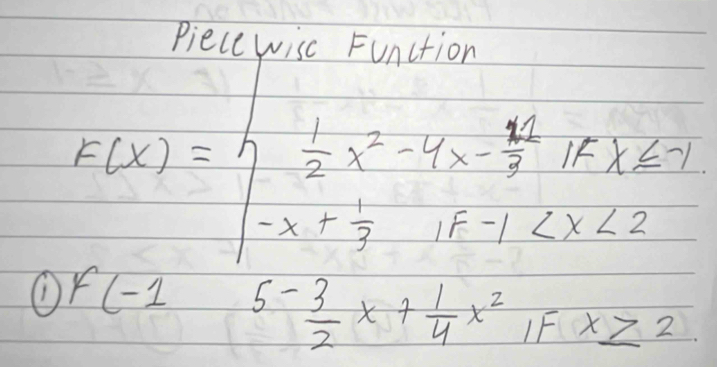 Piecewise Function
F(x) = { 1/2 x² - 4x - 1/3 IF x ≤ -1.
-x + 1/3 IF -1 < x < 2
① F(-1 5 - 3/2 x + 1/4 x² IF x ≥ 2.